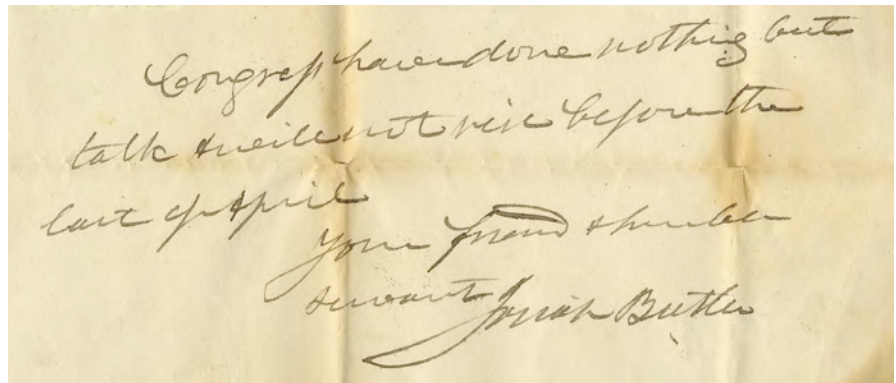 Congress have done nothing but
talk & will not rise before the
last of April
Your friend & humble
servant Josiah Butler